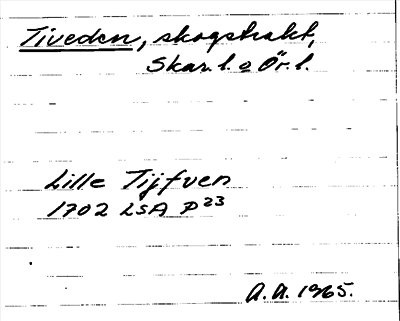 Tiveden, skogstrakt,
Skar. l. o Ör. l.
Lille Tijfven
1702 LSA P23
A. A. 1965.